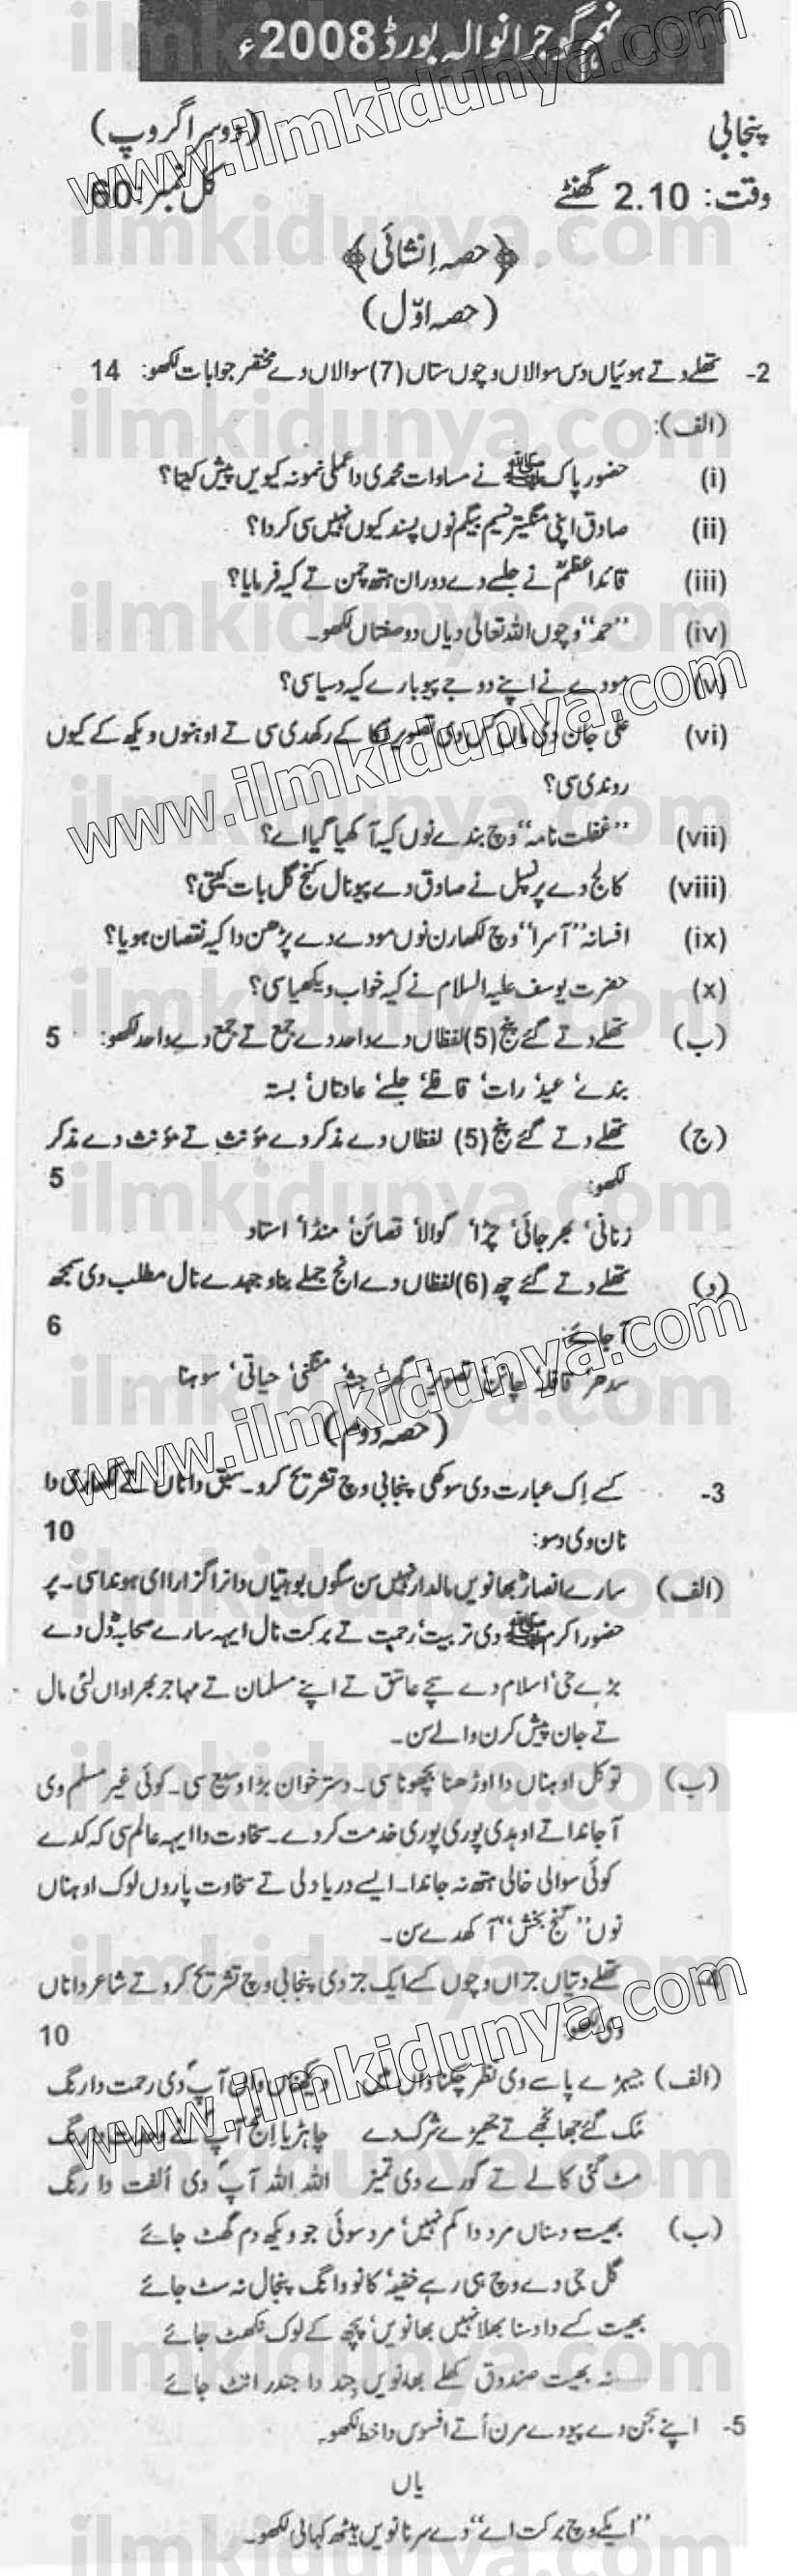 نہم گوجرانوالہ بورڈ 2008ء
پنجابی (دوسرا گروپ)
وقت: 2.10 گھنٹے کل نمبر: 60
﴿حصہ اِنشائی﴾
(حصہ اوّل)
2- تھلے دتے ہوئیاں دس سوالاں وچوں ستاں (7) سوالاں دے مختصر جوابات لکھو: 14
(الف):
(i) حضور پاک ﷺ نے مساوات محمدی دا عملی نمونہ کیویں پیش کیتا؟
(ii) صادق اپنی منگیتر نسیم بیگم نوں پسند کیوں نہیں سی کردا؟
(iii) قائداعظمؒ نے جلسے دے دوران ہتھ چمن تے کیہ فرمایا؟
(iv) ’’حمد‘‘ وچوں اللہ تعالیٰ دیاں دو صفتاں لکھو۔
(v) مودے نے اپنے دوجے پیو بارے کیہ دسیا سی؟
(vi) علی جان دی ماں کس دی تصویر لکا کے رکھدی سی تے اوہنوں ویکھ کے کیوں
روندی سی؟
(vii) ’’غفلت نامہ‘‘ وچ بندے نوں کیہ آکھیا گیا اے؟
(viii) کالج دے پرنسپل نے صادق دے پیو نال کنج گل بات کیتی؟
(ix) افسانہ ’’آسرا‘‘ وچ لکھارن نوں مودے دے پڑھن دا کیہ نقصان ہویا؟
(x) حضرت یوسف علیہ السلام نے کیہ خواب ویکھیا سی؟
(ب) تھلے دتے گئے پنج (5) لفظاں دے واحد دے جمع تے جمع دے واحد لکھو: 5
بندے، عید، رات، قافلے، جلسے، عادتاں، بستہ
(ج) تھلے دتے گئے پنج (5) لفظاں دے مذکر دے مؤنث تے مؤنث دے مذکر
لکھو: 5
زنانی، بھرجائی، چڑا، گوالا، قصائن، منڈا، استاد
(د) تھلے دتے گئے چھ (6) لفظاں دے انج جملے بناو جہدے نال مطلب دی سمجھ
آجائے: 6
سدھر، قافلہ، چانن، تصویر، گھٹ، جثہ، منگنی، حیاتی، سوہنا
(حصہ دوم)
3- کسے اِک عبارت دی سوکھی پنجابی وچ تشریح کرو۔ سبق دا ناں تے لکھاری دا
ناں وی دسو: 10
(الف) سارے انصارؓ بھانویں مالدار نہیں سن سگوں بوہتیاں دا نرا گزارا ای ہوندا سی۔ پر
حضور اکرم ﷺ دی تربیت، رحمت تے برکت نال ایہہ سارے صحابہؓ دل دے
بڑے سخی، اسلام دے سچے عاشق تے اپنے مسلمان تے مہاجر بھراواں لئی مال
تے جان پیش کرن والے سن۔
(ب) توکل اوہناں دا اوڑھنا بچھونا سی۔ دسترخوان بڑا وسیع سی۔ کوئی غیر مسلم وی
آ جاندا تے اوہدی پوری پوری خدمت کردے۔ سخاوت دا ایہہ عالم سی کہ کدے
کوئی سوالی خالی ہتھ نہ جاندا۔ ایسے دریا دلی تے سخاوت پاروں لوک اوہناں
نوں ’’گنج بخش‘‘ آکھدے سن۔
4- تھلے دتیاں جزاں وچوں کسے ایک جز دی پنجابی وچ تشریح کرو تے شاعر دا ناں
وی لکھو: 10
(الف) جیہڑے پاسے وی نظر چکناواں میں ویکھناں واں آپؐ دی رحمت دا رنگ
مُک گئے جھانجھے تے جھیڑے شرک دے چاہڑیا اِنج آپؐ نے وحدت دا رنگ
مٹ گئی کالے تے گورے دی تمیز اللہ اللہ آپؐ دی اُلفت دا رنگ
(ب) بھیت دسناں مرد دا کم نہیں، مرد سوئی جو ویکھ دم گھٹ جائے
گل جی دے وچ ہی رہے خفیہ، کانو وانگ پنجال نہ سٹ جائے
بھیت کسے دا دسنا بھلا نہیں بھانویں پچھ کے لوک نکھٹ جائے
نہ بھیت صندوق کھلے بھانویں جند دا جندر اٹٹ جائے
5- اپنے سجن دے پیو دے مرن اُتے افسوس دا خط لکھو۔
یاں
’’ایکے وچ برکت اے‘‘ دے سرنانویں ہیٹھ کہانی لکھو۔